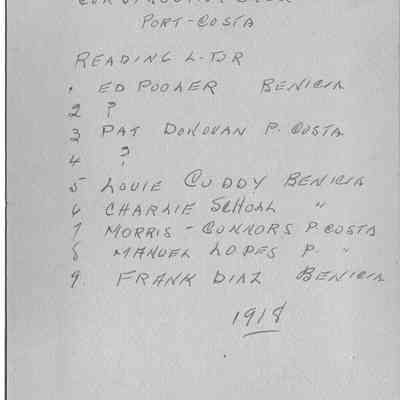 PORT-COSTA
READING L-TO-R
1 ED POOLER BENICIA
2 ?
3 PAT DONOVAN P. COSTA
4 ?
5 LOUIE CUDDY BENICIA
6 CHARLIE SCHOLL "
7 MORRIS - CONNORS P. COSTA
8 MANUEL LOPES P. "
9. FRANK DIAZ BENICIA
1918